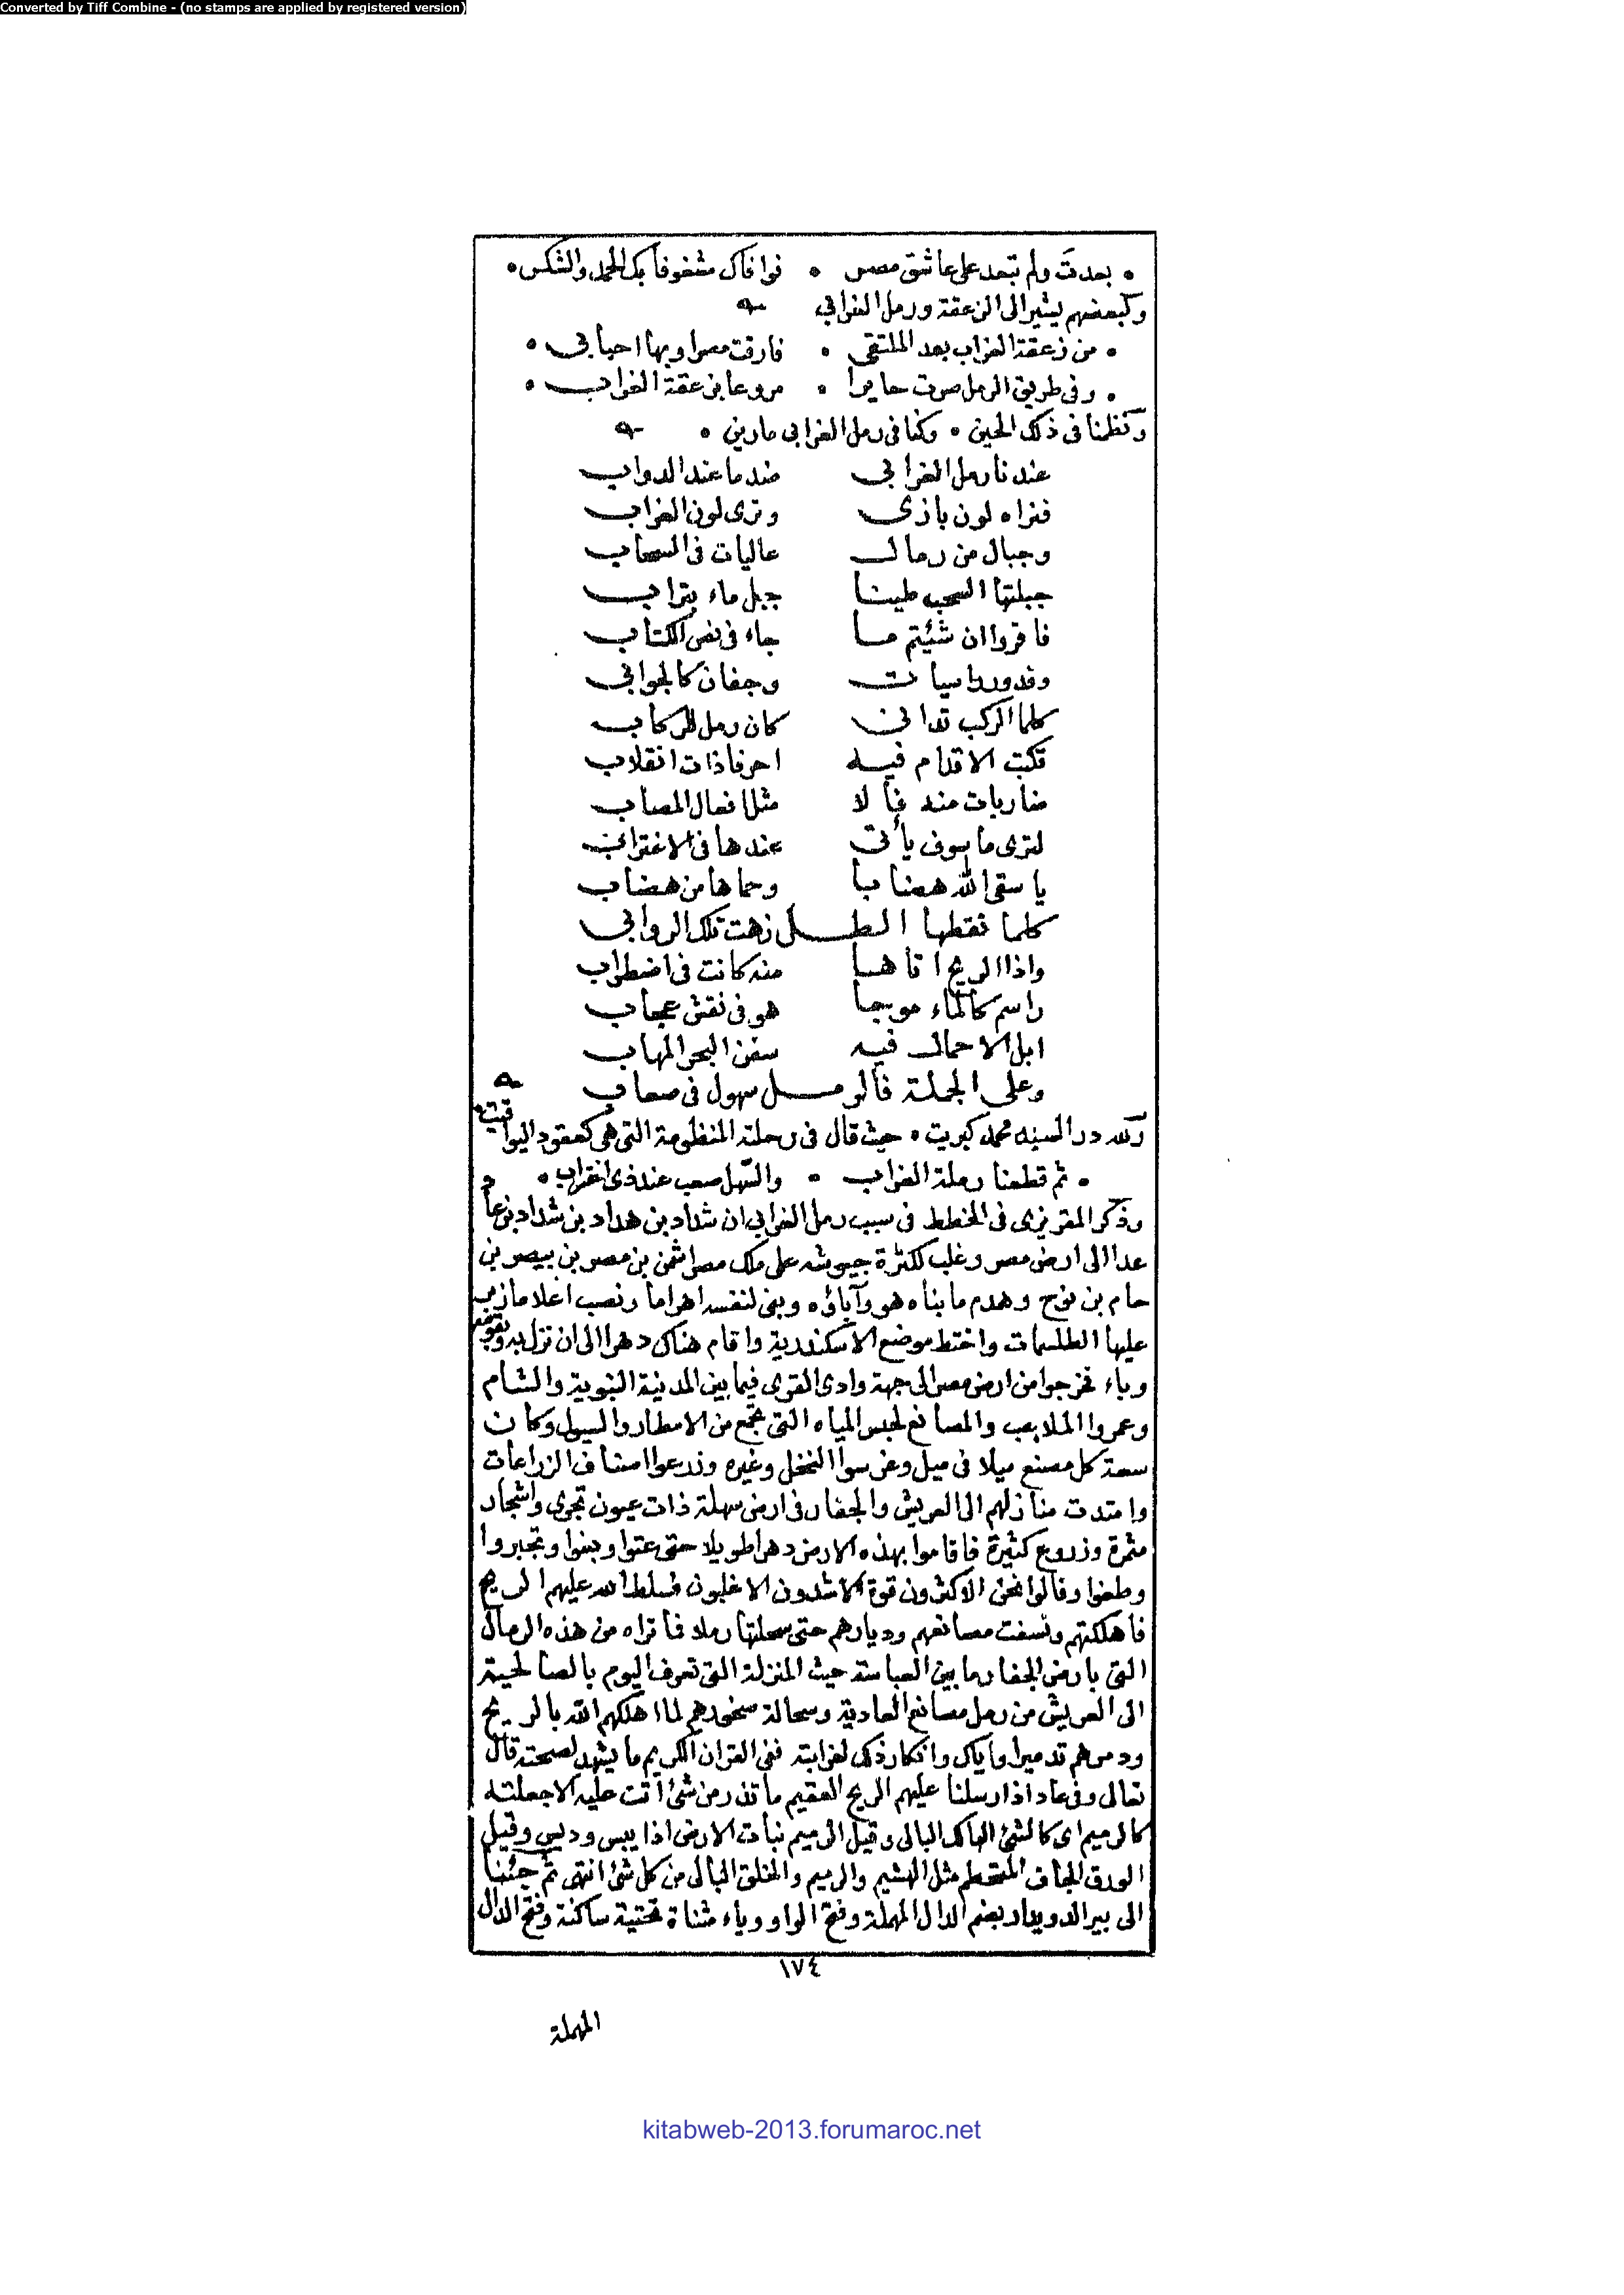 Converted by Tiff Combine - (no stamps are applied by registered version)
• بعدت ولم تبعد على عاشق مصر • فوافاك مشغوفا بك الحمد والشكر •
ولبعضهم يشير الى الزعقة ورمل الغرابي
• من زعقة الغراب بعد الملتقى • فارقت مصرا وبها احبابى •
• وفى طريق الرمل صرت حايرا • مروعا بزعقة الغراب •
ونظمنا فى ذلك الحين • وكنا فى رمل الغرابى مارين •
عندنا رمل الغرابى ضد ما عند الدواب
فنراه لون بازى وترى لون الغراب
وجبال من رمال عاليات فى السحاب
جبلتها السحب طينا جبل ماء بتراب
فاقروا ان شئتم ما جاء فى نص الكتاب
وقدور راسيات وجفان كالجوابى
كلما الركب تدانى كان رمل للركاب
تكتب الاقدام فيه احرفا ذات انقلاب
ضاربات منه فالا مثل افعال المصاب
لترى ما سوف يأتى عندها فى الاغتراب
يا سقى الله هضابا وحماها من هضاب
كلما نقطها الطل زهت تلك الروابى
واذا الريح اتاها منه كانت فى اضطراب
راسم كالماء موجا هو فى نقش عجاب
ابل الاحمال فيه سفن البحر المهاب
وعلى الجملة فالرمل سهول فى صعاب
ولله در السيد محمد كبريت • حيث قال فى رحلته المنظومة التى هى كعقود اليواقيت
• ثم قطعنا رملة الغراب • والسهل صعب عند ذى اغتراب •
وذكر المقريزى فى الخطط فى سبب رمل الغرابى ان شداد بن هداد بن شداد بن عاد
عدا الى ارض مصر وغلب لكثرة جيوشه على ملك مصر اشمن بن مصر بن بيصر بن
حام بن نوح وهدم ما بناه هو وآباؤه وبنى لنفسه اهراما ونصب اعلاما زبر
عليها الطلسمات واختط موضع الاسكندرية واقام هناك دهرا الى ان نزل به وبقومه
وباء فخرجوا من ارض مصر الى جهة وادى القرى فيما بين المدينة النبوية والشام
وعمروا الملاعب والمصانع لحبس المياه التى تجتمع من الامطار والسيول وكان
سعة كل مصنع ميلا فى ميل وغرسوا النخل وغيره وزرعوا اصناف الزراعات
وامتدت منازلهم الى العريش والجفار فى ارض سهلة ذات عيون تجرى واشجار
مثمرة وزروع كثيرة فاقاموا بهذه الارض دهرا طويلا حتى عتوا وبغوا وتجبروا
وطغوا وقالوا نحن الاكثرون قوة الاشدون الاغلبون فسلط الله عليهم الريح
فاهلكتهم ونسفت مصانعهم وديارهم حتى سحلتها رملا فما تراه من هذه الرمال
التى بارض الجفار ما بين العباسة حيث المنزلة التى تعرف اليوم بالصالحية
الى العريش من رمل مصانع العادية وسحالة صخورهم لما اهلكهم الله بالريح
ودمرهم تدميرا واياك وانكار ذلك لغرابته ففى القران الكريم ما يشهد لصحته قال
تعالى وفى عاد اذ ارسلنا عليهم الريح العقيم ما تذر من شئ اتت عليه الا جعلته
كالرميم اى كالشئ الهالك البالى وقيل الرميم نبات الارض اذا يبس وديس وقيل
الورق الجاف المتحطم مثل الهشيم والرميم والخلق البالى من كل شئ انتهى ثم جئنا
الى بير الدويدار بضم الدال المهملة وفتح الواو وياء مثناة تحتية ساكنة وفتح الدال
١٧٤
المهملة
kitabweb-2013.forumaroc.net